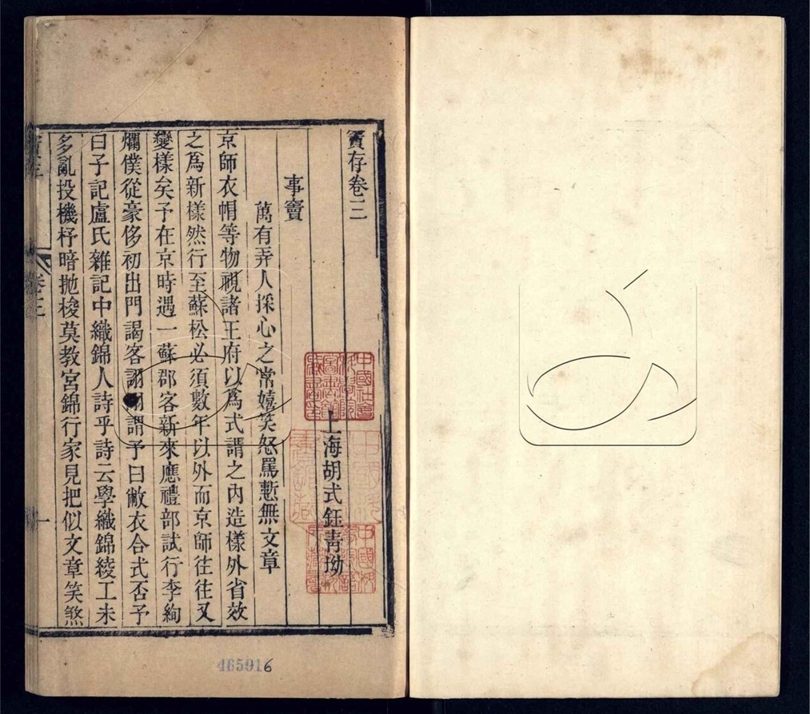 竇存卷三
上海胡式鈺青坳
事竇
萬有弄人採心之常嬉笑怒罵慙無文章
京師衣帽等物視諸王府以爲式謂之內造樣外省效
之爲新樣然行至蘇松必須數年以外而京師往往又
變樣矣予在京時遇一蘇郡客新來應禮部試行李絢
爛僕從豪侈初出門謁客詡詡謂予曰敝衣合式否予
曰子記盧氏雜記中織錦人詩乎詩云學織錦綾工未
多亂投機杼暗拋梭莫教宮錦行家見把似文章笑煞
卷三
一